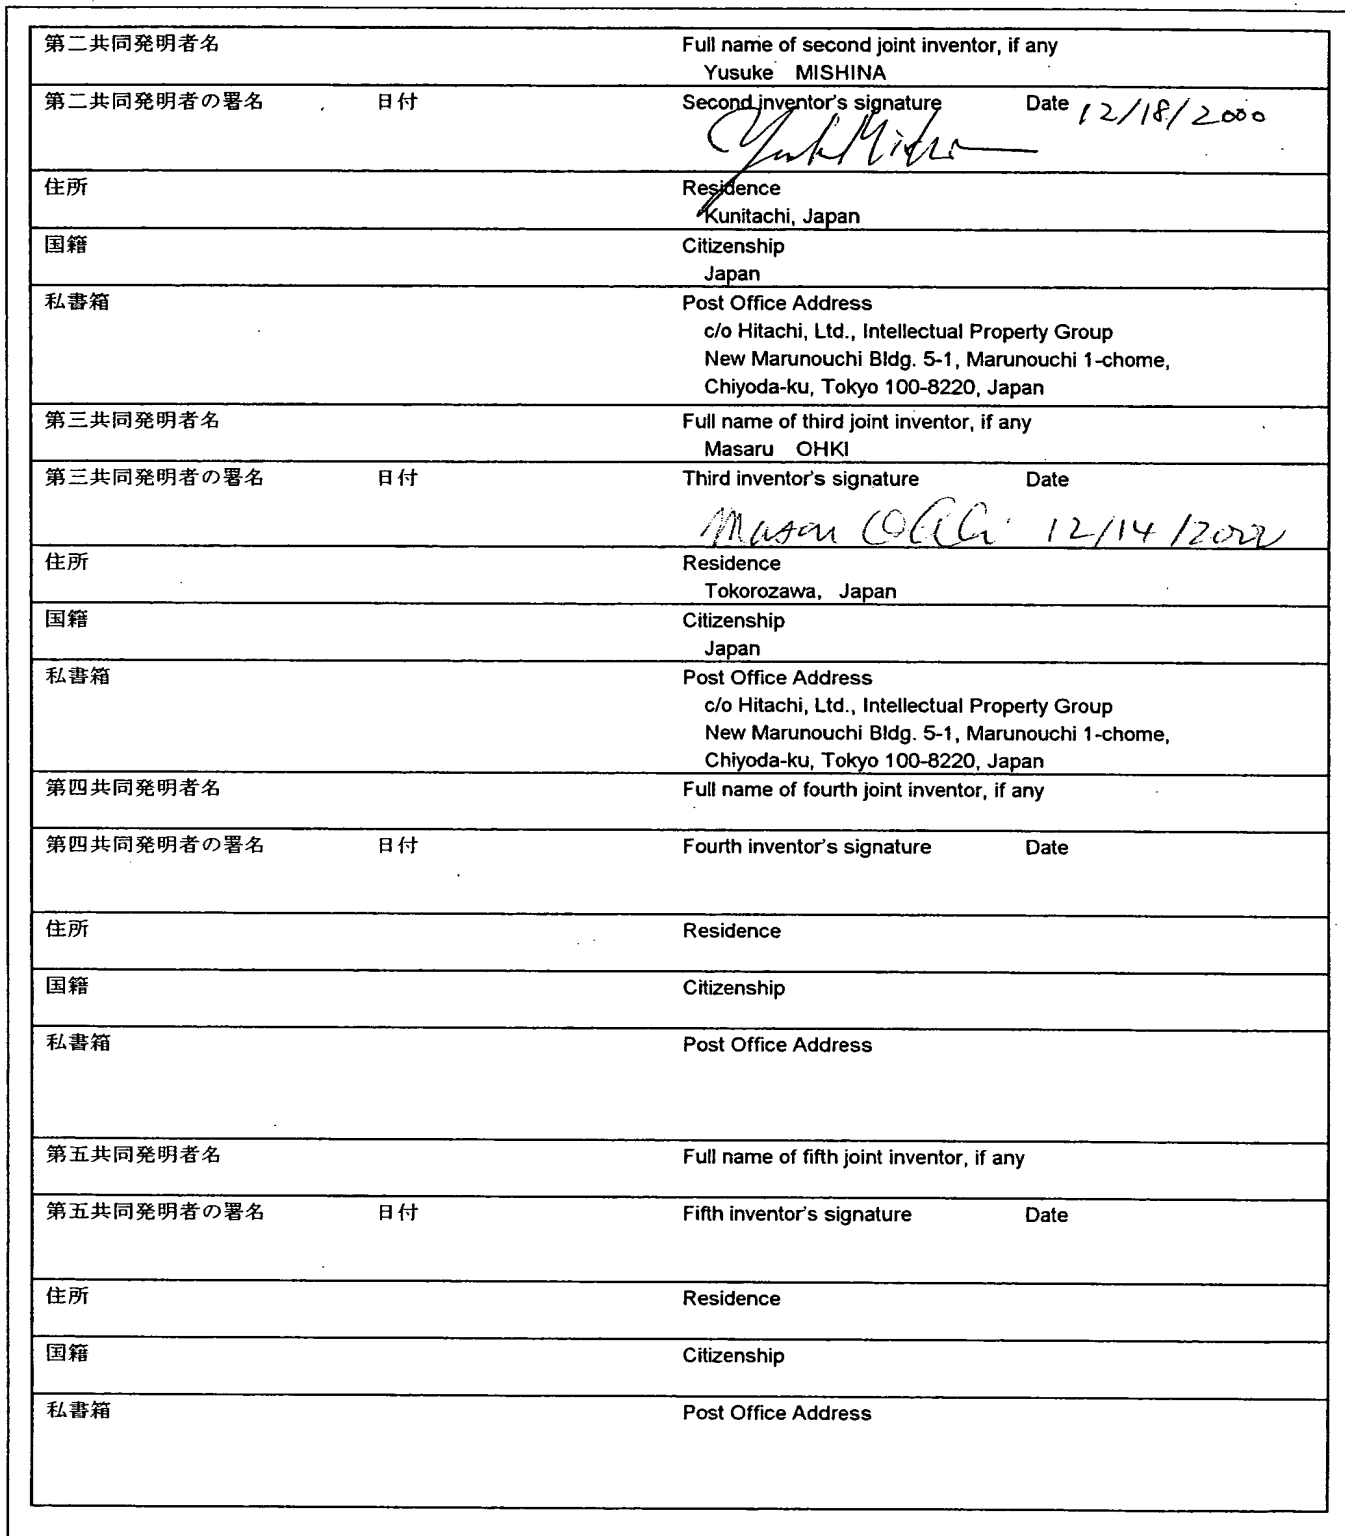 第二共同発明者名 Full name of second joint inventor, if any
Yusuke MISHINA
第二共同発明者の署名 日付 Second inventor's signature Date 12/18/2000
住所 Residence
Kunitachi, Japan
国籍 Citizenship
Japan
私書箱 Post Office Address
c/o Hitachi, Ltd., Intellectual Property Group
New Marunouchi Bldg. 5-1, Marunouchi 1-chome,
Chiyoda-ku, Tokyo 100-8220, Japan
第三共同発明者名 Full name of third joint inventor, if any
Masaru OHKI
第三共同発明者の署名 日付 Third inventor's signature Date
12/14/2000
住所 Residence
Tokorozawa, Japan
国籍 Citizenship
Japan
私書箱 Post Office Address
c/o Hitachi, Ltd., Intellectual Property Group
New Marunouchi Bldg. 5-1, Marunouchi 1-chome,
Chiyoda-ku, Tokyo 100-8220, Japan
第四共同発明者名 Full name of fourth joint inventor, if any
第四共同発明者の署名 日付 Fourth inventor's signature Date
住所 Residence
国籍 Citizenship
私書箱 Post Office Address
第五共同発明者名 Full name of fifth joint inventor, if any
第五共同発明者の署名 日付 Fifth inventor's signature Date
住所 Residence
国籍 Citizenship
私書箱 Post Office Address